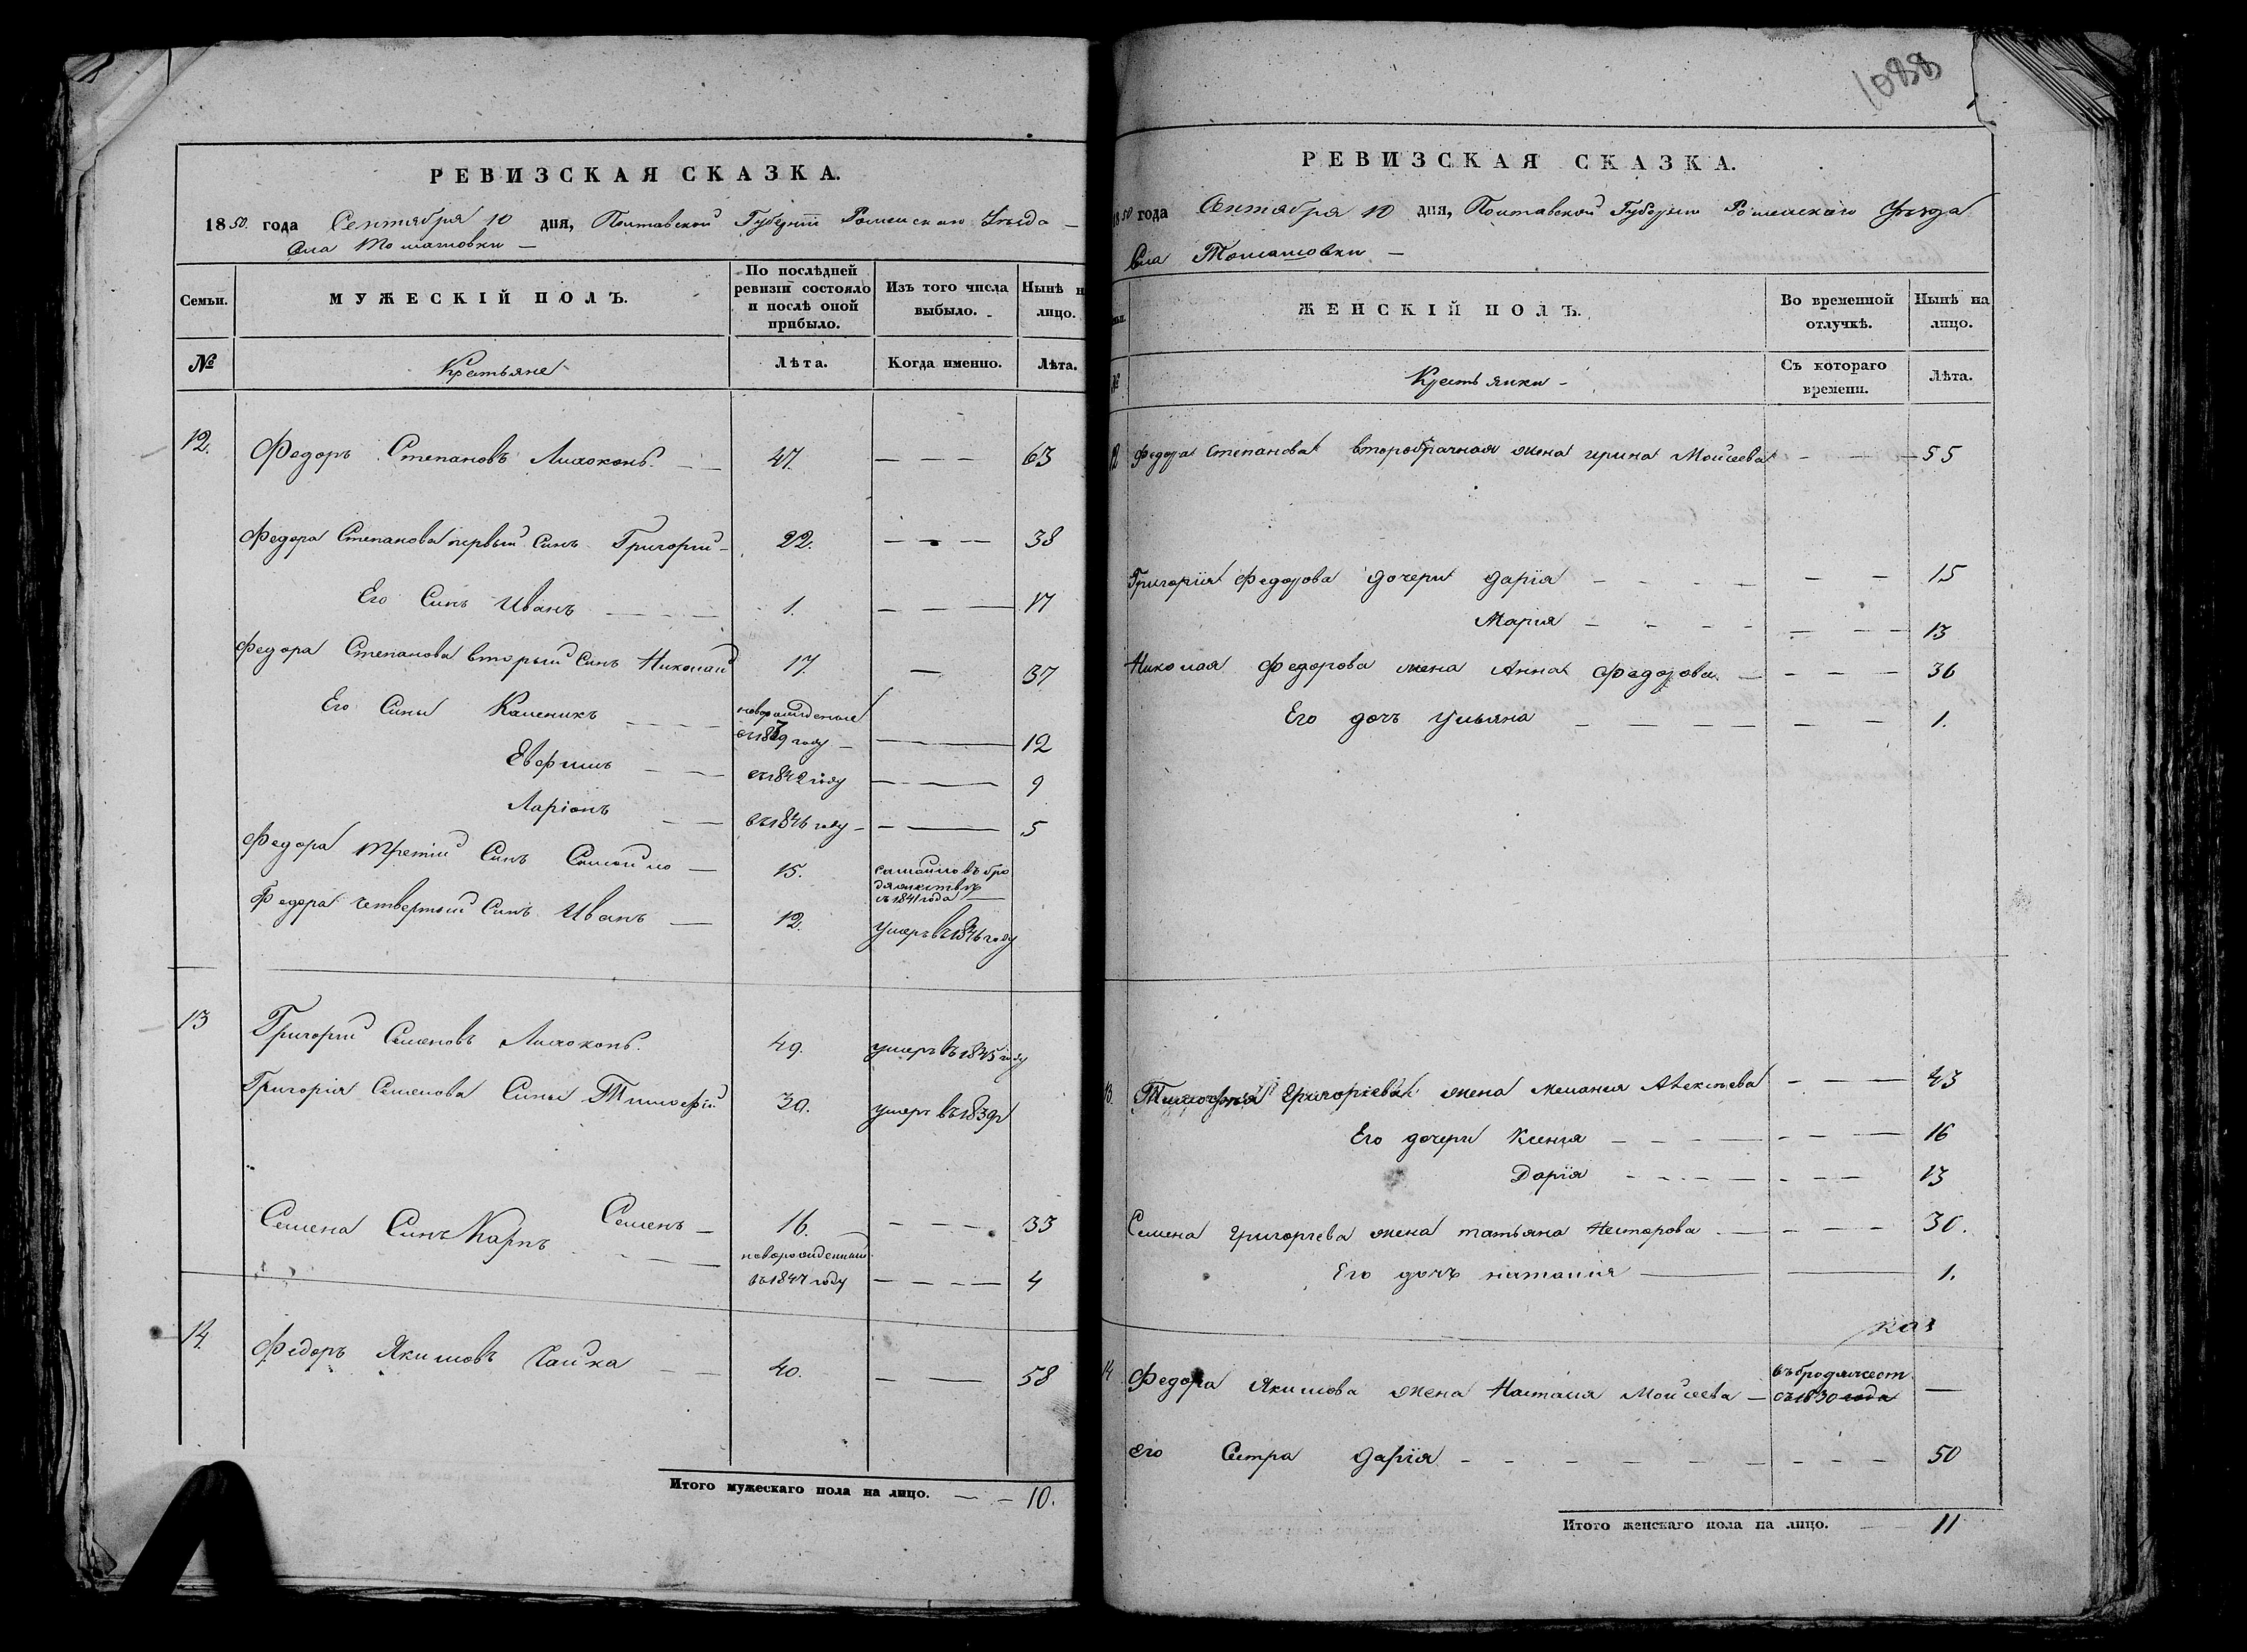 РЕВИЗСКАЯ СКАЗКА.
1850. года Сентября 10 дня, Полтавской Губернии Роменского Уезда
Села Томашовки —
Семьи. МУЖЕСКІЙ ПОЛЪ. По послѣдней ревизіи состояло и послѣ оной прибыло. Изъ того числа выбыло. Нынѣ н лицо.
№ Крестьяне Лѣта. Когда именно. Лѣта.
12. Федоръ Степановъ Лихоконь. 47. — — — 63
Федора Степанова первый Синъ Григорий 22. — — — 38
Его Синъ Иванъ 1. — — — 17
Федора Степанова вторый Синъ Николай 17. — 37
Его Сины Каленикъ новорожденные
въ 1839 году — 12
Евфимъ въ 1842 году — 9
Ларіонъ въ 1846 году — 5
Федора третій Синъ Самойло — 15. самойло въ бро
дяжествѣ
съ 1841 года
Федора четвертый Синъ Иванъ — 12. умеръ въ 1846 году
13 Григорий Семеновъ Лихоконь. 49. умеръ въ 1845 году
Григорія Семенова Сины Тимофей 30. умеръ въ 1839 г
Семенъ — 16. — — — 33
Семена Синъ Карпъ новорожденный
въ 1847 году — — — — 4
14. Федоръ Якимовъ Чайка 40. — — 58
Итого мужескаго пола на лицо. — — 10.
1088
РЕВИЗСКАЯ СКАЗКА.
1850 года Сентября 10 дня, Полтавской Губернии Роменского Уезда
Села Томашовки —
ЖЕНСКІЙ ПОЛЪ. Во временной отлучкѣ. Нынѣ на лицо.
№ Крестьянки — Съ котораго времени. Лѣта.
12 Федора Степанова второбрачная жена ирина Мойсеева — — — 55
Григорія Федорова дочери дарія — — — — — — 15
Марія — — — — — — — 13
Николая Федорова жена Анна Федорова — — — — 36
Его дочь ульяна — — — — — — 1.
13. Тимофея Григоріева жена меланія Алексѣева — — — 43
Его дочери Ксенія — — — — — — — 16
Дарія — — — — — — — 13
Семена григоріева жена татьяна Нестерова — — — — 30.
Его дочь наталія — — 1.
14 Федора Якимова жена Наталія Мойсеева — въ бродяжест
съ 1830 года —
его Сестра дарія — — — — — — — — — — 50
Итого женскаго пола на лицо. — — 11